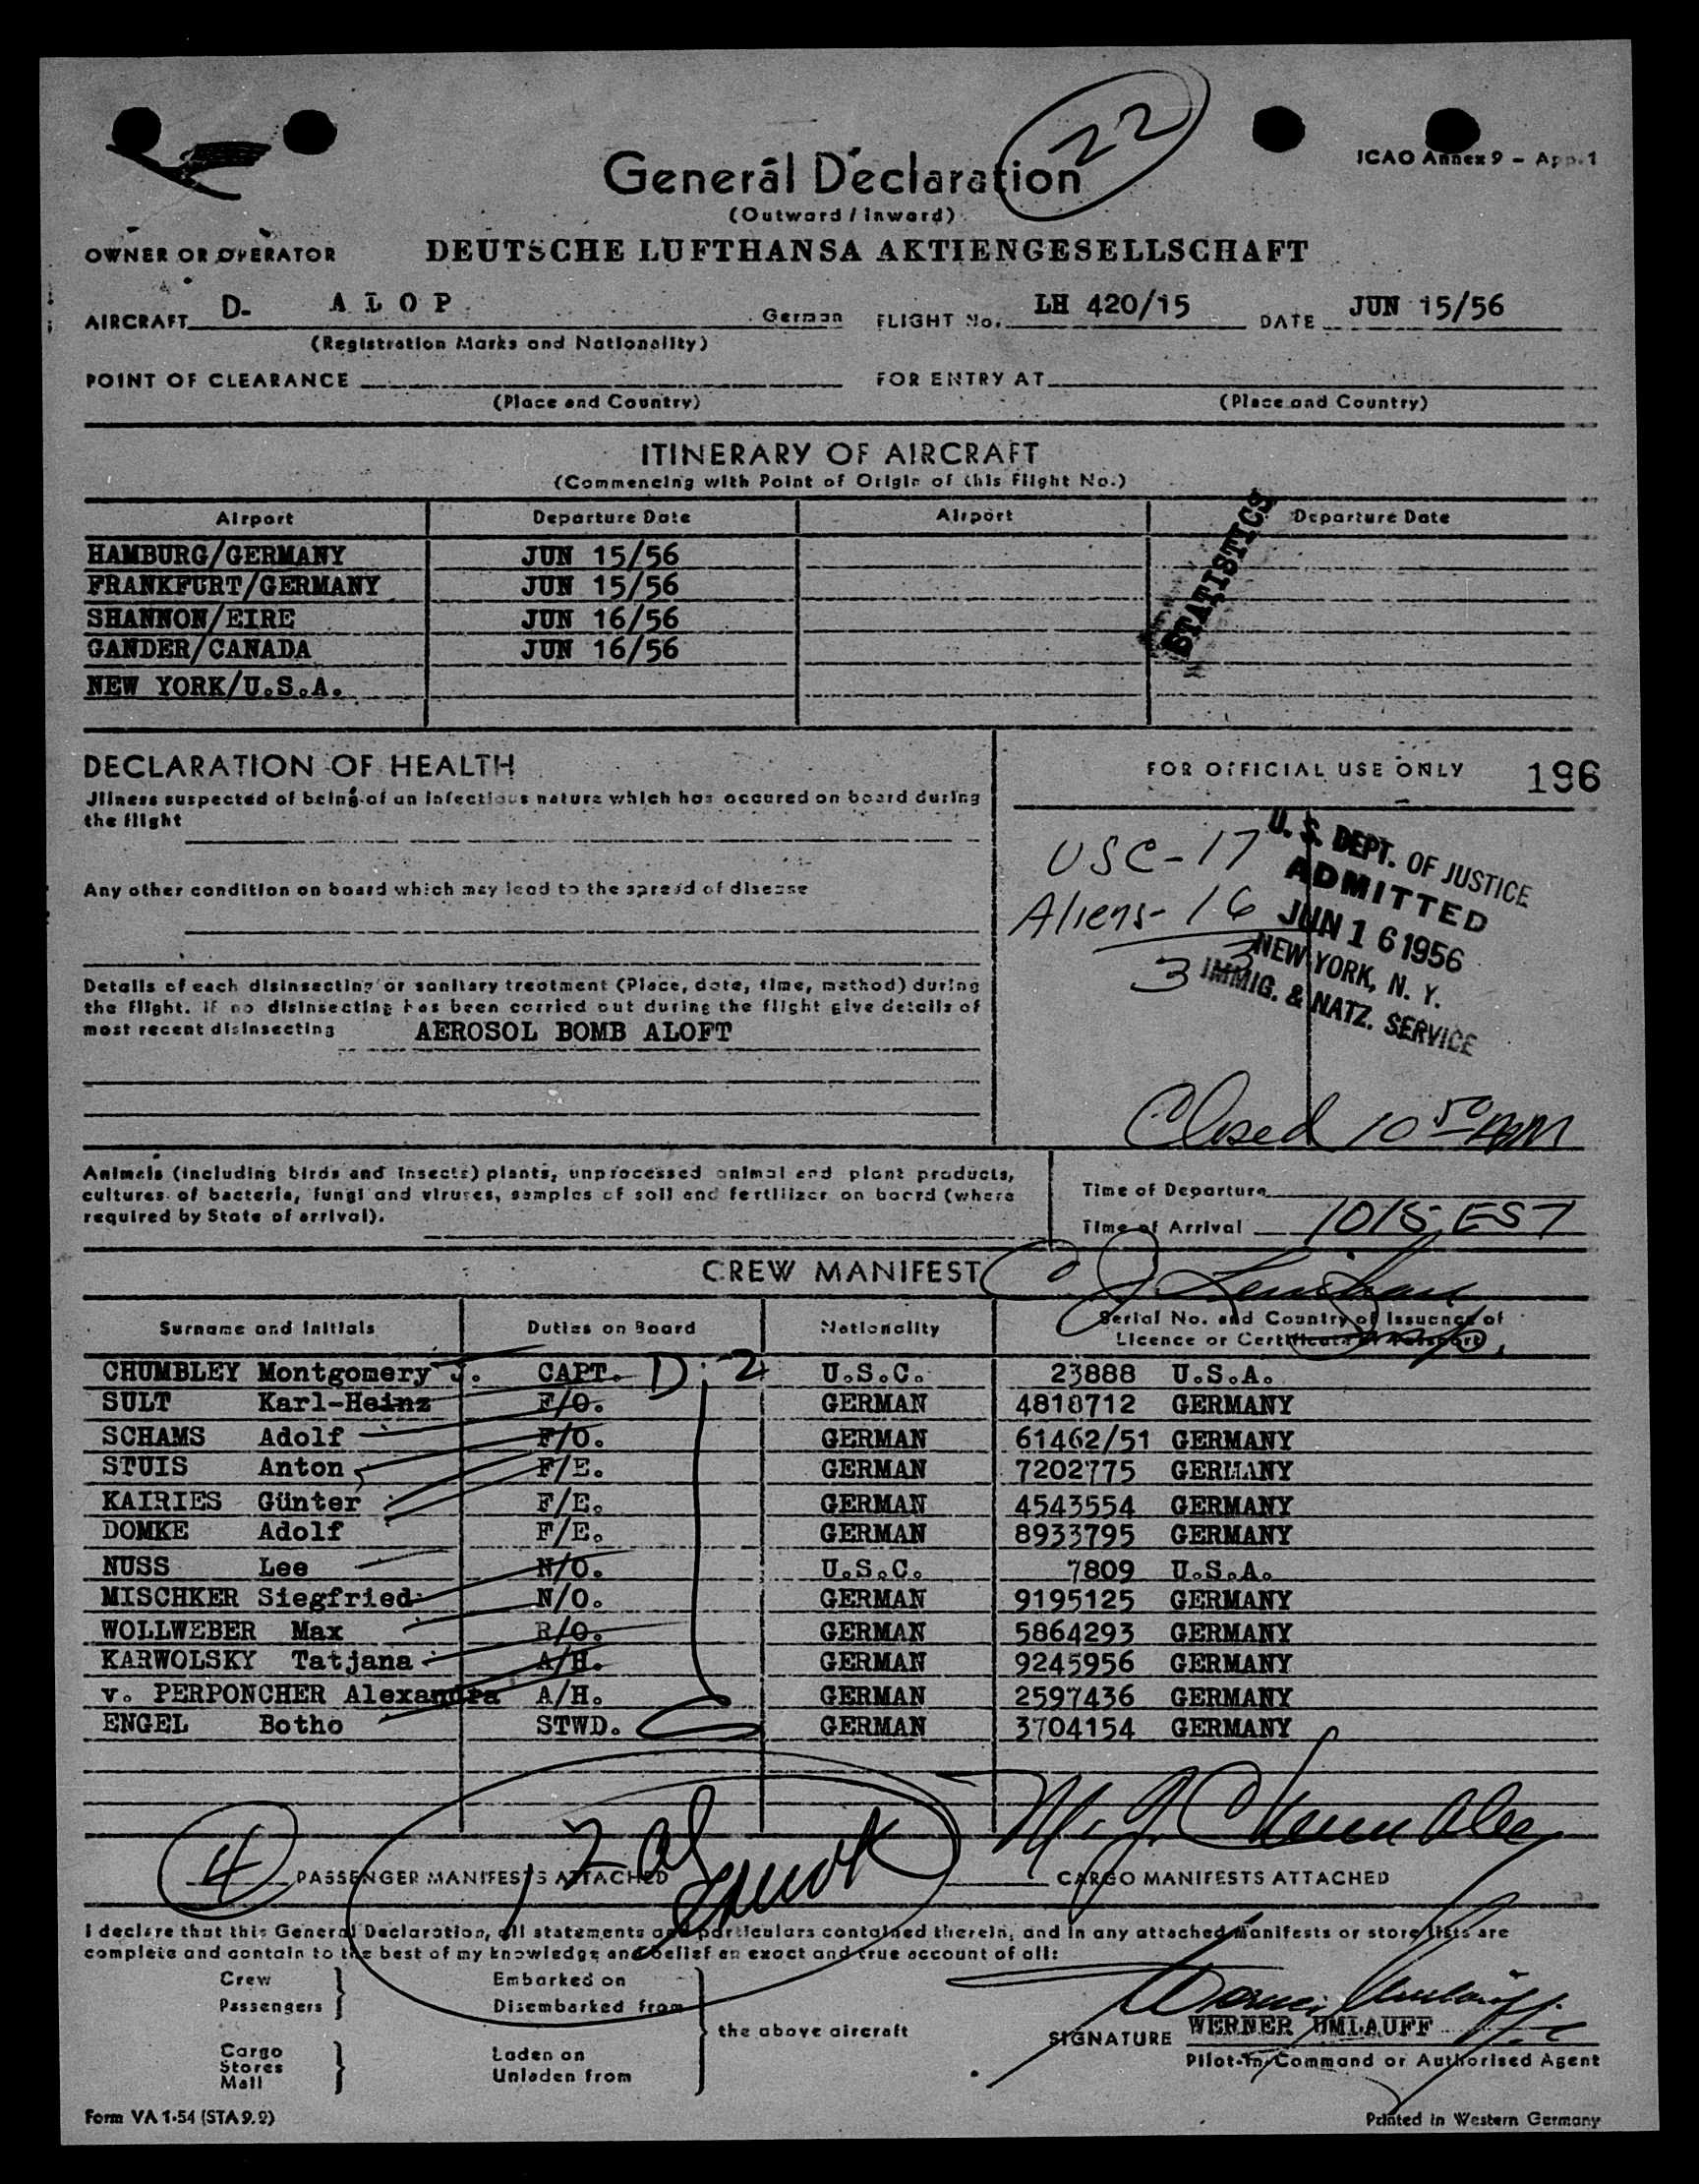 22
ICAO Annex 9 - App. 1
General Declaration
(Outward / Inward)
OWNER OR OPERATOR DEUTSCHE LUFTHANSA AKTIENGESELLSCHAFT
AIRCRAFT D- A L O P German FLIGHT No. LH 420/15 DATE JUN 15/56
(Registration Marks and Nationality)
POINT OF CLEARANCE FOR ENTRY AT
(Place and Country) (Place and Country)
ITINERARY OF AIRCRAFT
(Commencing with Point of Origin of this Flight No.)
Airport Departure Date Airport Departure Date
HAMBURG/GERMANY JUN 15/56
FRANKFURT/GERMANY JUN 15/56
SHANNON/EIRE JUN 16/56
GANDER/CANADA JUN 16/56
NEW YORK/U.S.A.
STATISTICS
DECLARATION OF HEALTH
Jllness suspected of being of an infectious nature which has occured on board during
the flight
Any other condition on board which may lead to the spread of disease
Details of each disinsecting or sanitary treatment (Place, date, time, method) during
the flight. If no disinsecting has been carried out during the flight give details of
most recent disinsecting AEROSOL BOMB ALOFT
FOR OFFICIAL USE ONLY 196
USC-17
Aliens-16
33
U. S. DEPT. OF JUSTICE
ADMITTED
JUN 16 1956
NEW YORK, N. Y.
IMMIG. & NATZ. SERVICE
Closed 10 50 AM
Animals (including birds and insects) plants, unprocessed animal and plant products,
cultures of bacteria, fungi and viruses, samples of soil and fertilizer on board (where
required by State of arrival).
Time of Departure
Time of Arrival 1015 EST
CREW MANIFEST
Surname and Initials Duties on Board Nationality Serial No. and Country of Issuance of
Licence or Certificate or Passport
CHUMBLEY Montgomery J. CAPT. D-2 U.S.C. 23888 U.S.A.
SULT Karl-Heinz F/O. GERMAN 4818712 GERMANY
SCHAMS Adolf F/O. GERMAN 61462/51 GERMANY
STUIS Anton F/E. GERMAN 7202775 GERMANY
KAIRIES Günter F/E. GERMAN 4543554 GERMANY
DOMKE Adolf F/E. GERMAN 8933795 GERMANY
NUSS Lee N/O. U.S.C. 7809 U.S.A.
MISCHKER Siegfried N/O. GERMAN 9195125 GERMANY
WOLLWEBER Max R/O. GERMAN 5864293 GERMANY
KARWOLSKY Tatjana A/H. GERMAN 9245956 GERMANY
v. PERPONCHER Alexandra A/H. GERMAN 2597436 GERMANY
ENGEL Botho STWD. GERMAN 3704154 GERMANY
M. J. Chumbley
4 PASSENGER MANIFESTS ATTACHED CARGO MANIFESTS ATTACHED
12
I declare that this General Declaration, all statements and particulars contained therein, and in any attached Manifests or store lists are
complete and contain to the best of my knowledge and belief an exact and true account of all:
Crew Embarked on
Passengers Disembarked from
the above aircraft
Cargo Laden on
Stores Unladen from
Mail
Werner Umlauff
SIGNATURE WERNER UMLAUFF
Pilot-in-Command or Authorised Agent
Form VA 1-54 (STA 9.9)
Printed in Western Germany